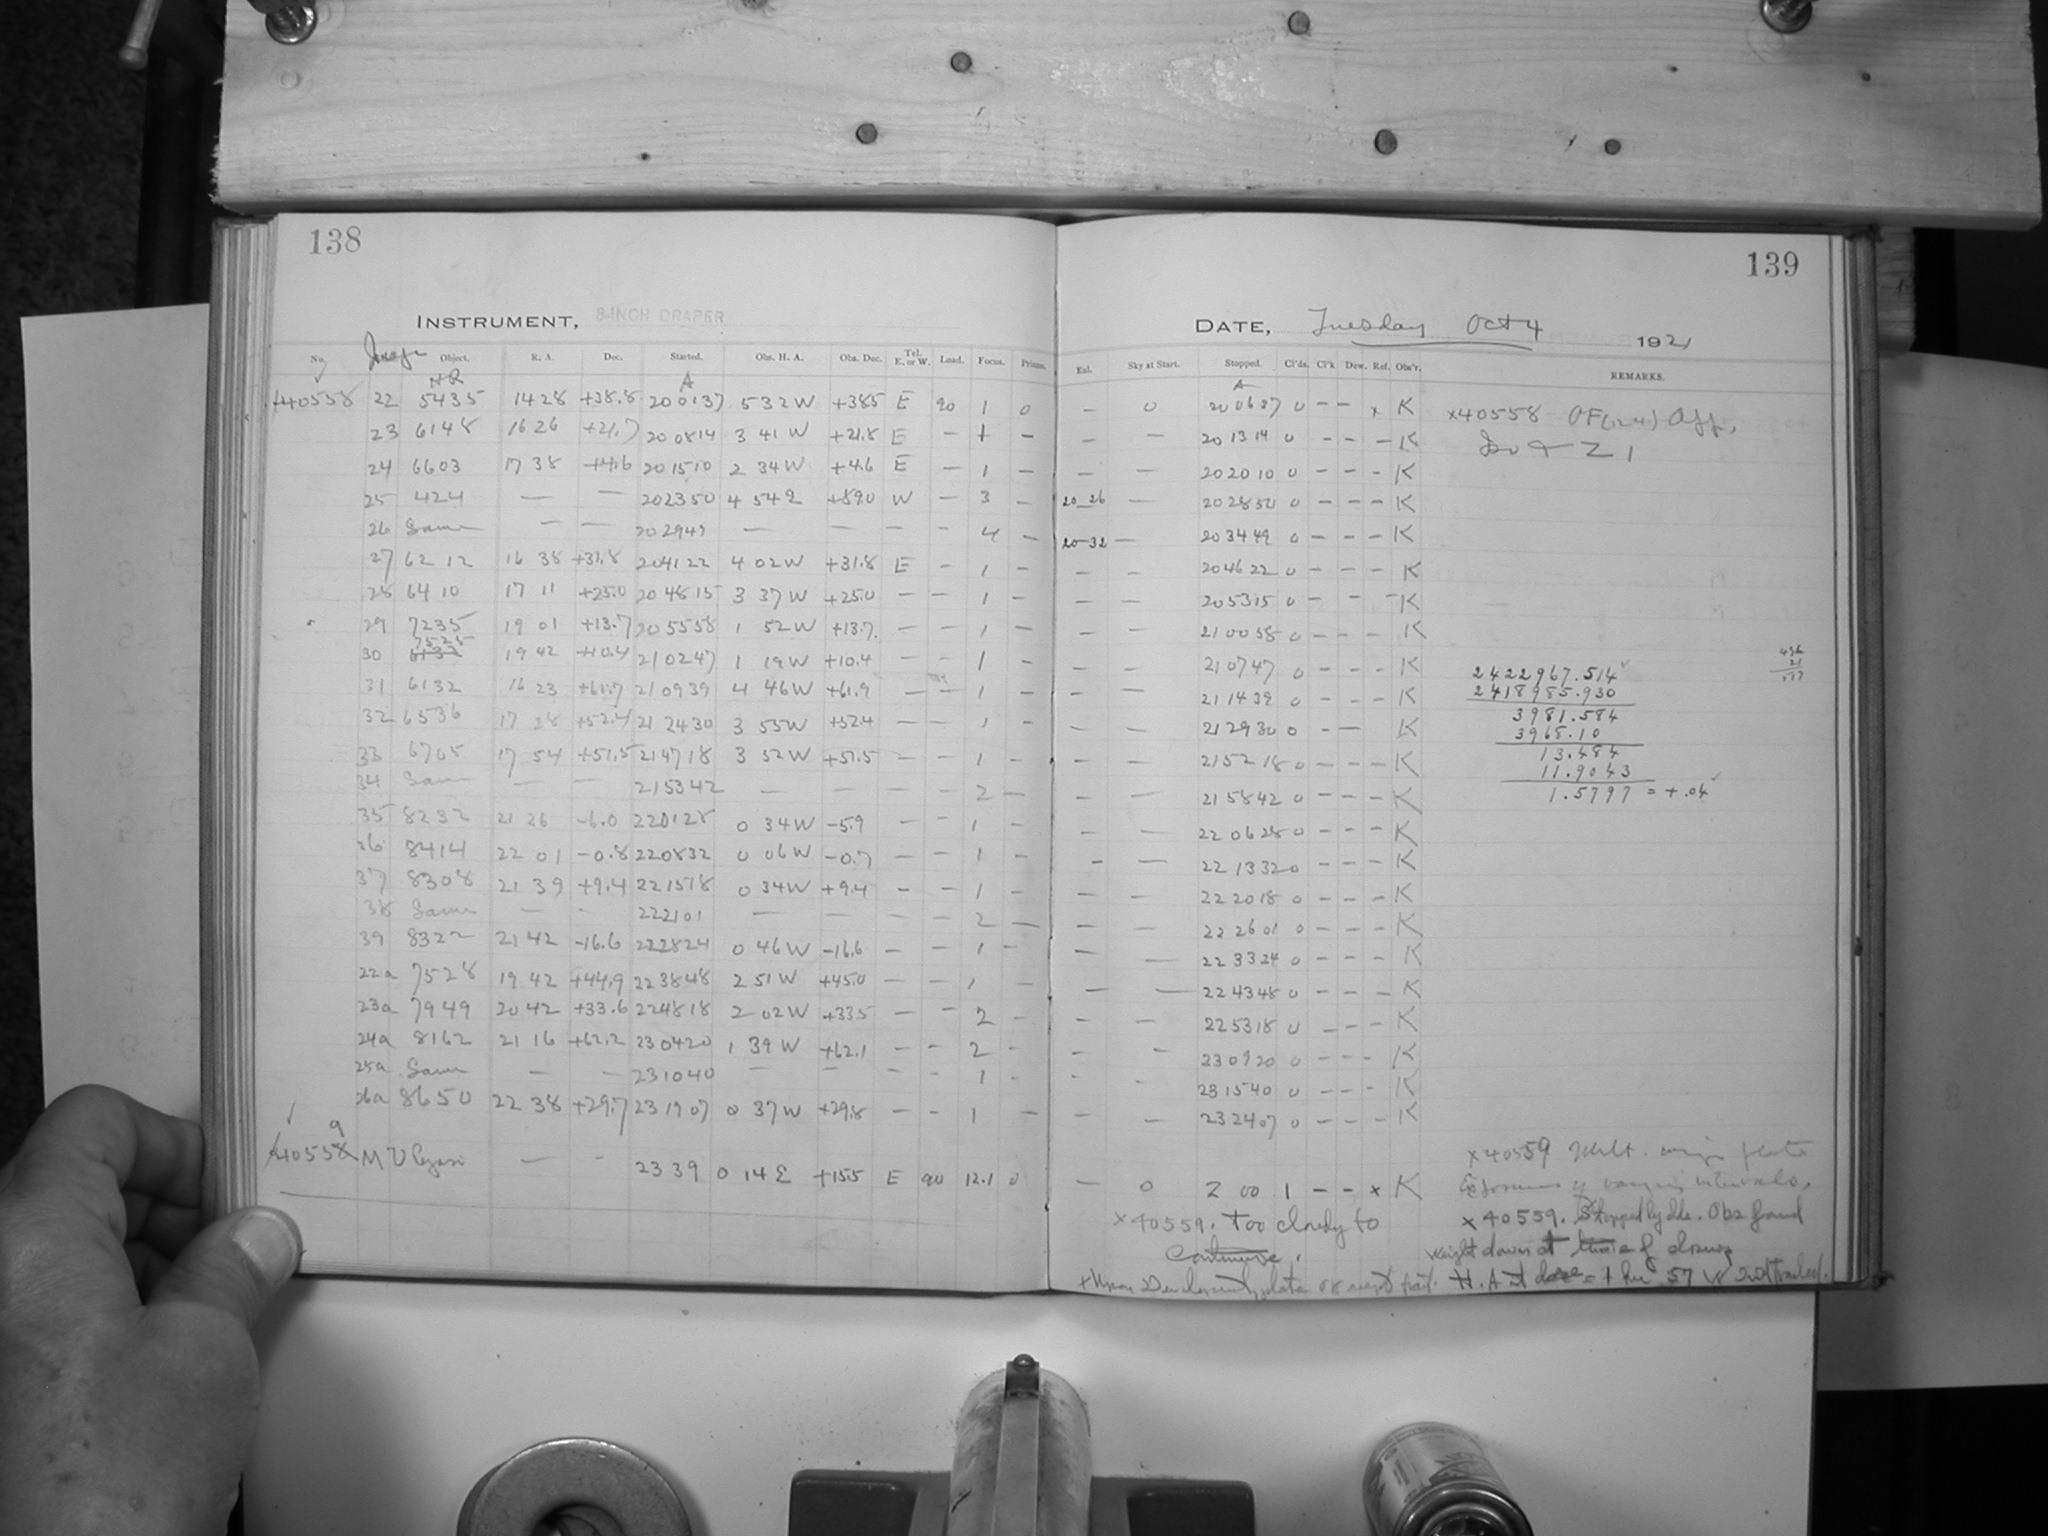 138
139
INSTRUMENT, 8-INCH DRAPER
DATE, Tuesday Oct 4 1921
No. Image Object. R. A. Dec. Started. Obs. H. A. Obs. Dec. Tel. E. or W. Load. Focus. Prisms. Exl. Sky at Start. Stopped. Cl'ds. Cl'k Dew. Ref. Obs'r. REMARKS.
HR A A
40558 22 5435 14 28 +38.8 20 01 37 5 32 W +38.5 E 90 1 0 — 0 20 06 37 0 – – x K x40558
23 6148 16 26 +21.7 20 08 14 3 41 W +21.8 E — 1 – — — 20 13 14 0 – – – K
24 6603 17 38 +4.6 20 15 10 2 34 W +4.6 E — 1 – — — 20 20 10 0 – – – K
25 424 — — 20 23 50 4 54 2 +89.0 W – 3 – 20 26 — 20 28 50 0 – – – K
26 Same — — 20 29 49 — — – – 4 – 20–32 — 20 34 49 0 – – – K
27 6212 16 38 +31.8 20 41 22 4 02 W +31.8 E – 1 – — — 20 46 22 0 – – – K
28 6410 17 11 +25.0 20 48 15 3 37 W +25.0 – – 1 – — — 20 53 15 0 – – – K
29 7235 19 01 +13.7 20 55 58 1 52 W +13.7 – – 1 – — — 21 00 58 0 – – – K
30 7525 19 42 +10.4 21 02 47 1 19 W +10.4 – – 1 – — — 21 07 47 0 – – – K
31 6132 16 23 +61.7 21 09 39 4 46 W +61.9 – – 1 – — — 21 14 39 0 – – – K
32 6536 17 28 +52.4 21 24 30 3 55 W +52.4 – – 1 – — — 21 29 30 0 – — K
33 6705 17 54 +51.5 21 47 18 3 52 W +51.5 – – 1 – — — 21 52 18 0 – – – K
34 Same — — 21 53 42 — — – – 2 – — — 21 58 42 0 – – – K
35 8232 21 26 -6.0 22 01 28 0 34 W -5.9 – – 1 – — — 22 06 28 0 – – – K
36 8414 22 01 -0.8 22 08 32 0 06 W -0.7 – – 1 – — — 22 13 32 0 – – – K
37 8308 21 39 +9.4 22 15 18 0 34 W +9.4 – – 1 – — — 22 20 18 0 – – – K
38 Same — – 22 21 01 — — – – 2 – — — 22 26 01 0 – – – K
39 8322 21 42 -16.6 22 28 24 0 46 W -16.6 – – 1 – — — 22 33 24 0 – – – K
22a 7528 19 42 +44.9 22 38 48 2 51 W +45.0 – – 1 – — — 22 43 48 0 – – – K
23a 7949 20 42 +33.6 22 48 18 2 02 W +33.5 – – 2 – — — 22 53 18 0 – – – K
24a 8162 21 16 +62.2 23 04 20 1 39 W +62.1 – – 2 – — — 23 09 20 0 – – – K
25a Same — — 23 10 40 — — – – 1 – — — 23 15 40 0 – – – K
26a 8650 22 38 +29.7 23 19 07 0 37 W +29.8 – – 1 – — — 23 24 07 0 – – – K
2422967.514
2418985.930
3981.584
3968.10
13.484
11.9043
1.5797 = +.04
40559 M U Pegasi — – 23 39 0 14 E +15.5 E 90 12.1 0 — 0 2 00 1 – – x K
x40559 plate
Exposures of varying intervals.
x40559. Too cloudy to
continue.
x40559. Stopped by clds. Obs found
weight down at time of closing
H. A at close = 1 hr 57 W